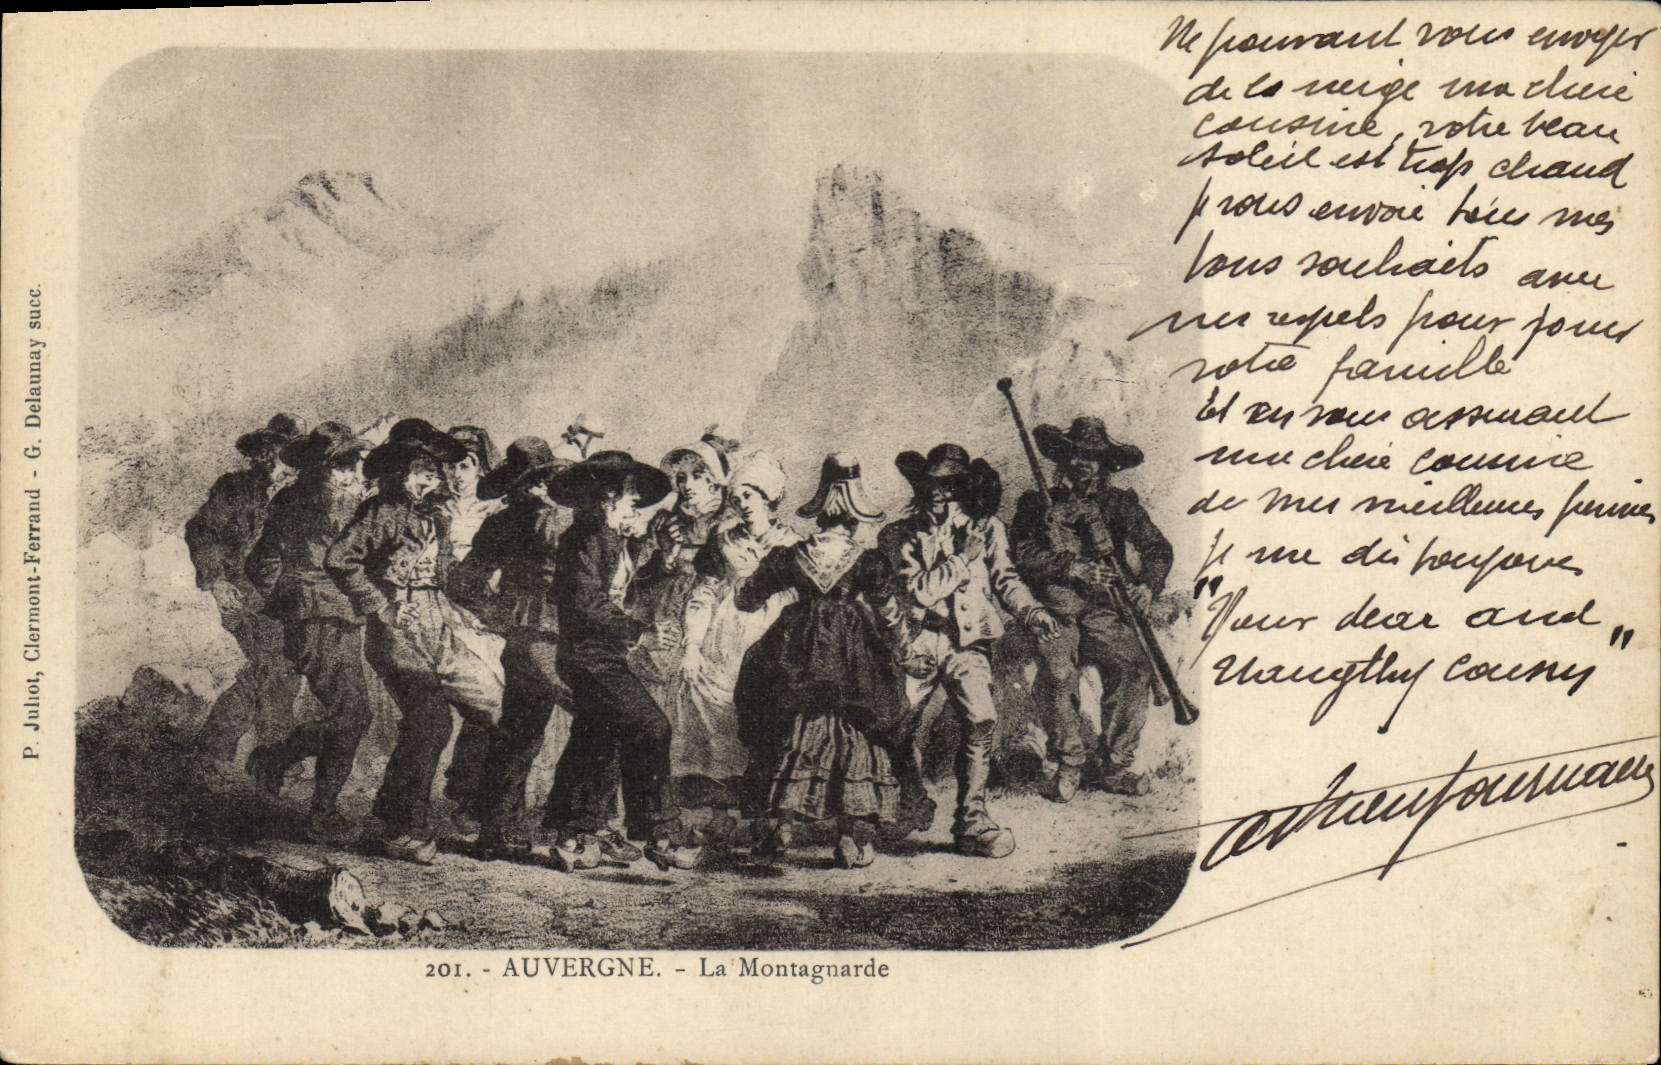 Ne pouvant vous envoyer
de la neige ma chère
cousine, votre beau
soleil est trop chaud
je vous envoie tous mes
bons souhaits avec
mes respects pour toute
votre famille
Et en vous assurant
ma chère cousine
de mes meilleures pensées
je me dis toujours
"Your dear and
naugthy cousin"
201. - AUVERGNE. - La Montagnarde
P. Juliot, Clermont-Ferrand - G. Delaunay succ.